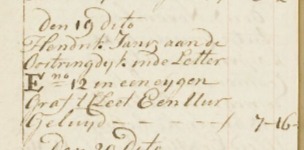 Den 19 dito
Hendrik Jansz aan de
Oostzingdyk in de Letter
E no 12 in een eygen
Graf t Leet Een Uur
Geluyd - - - - / 7-16-
Den 20 Dito